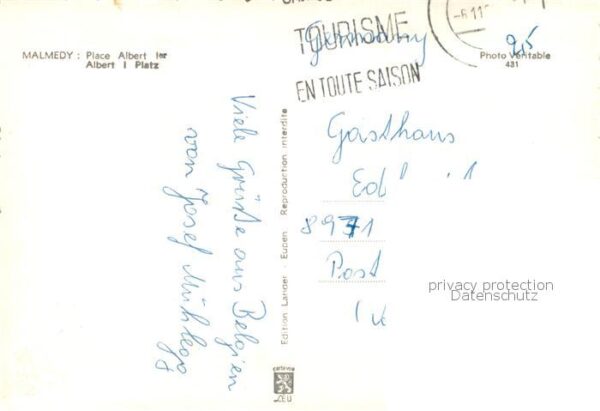 MALMEDY : Place Albert Ier
Albert I Platz
TOURISME
EN TOUTE SAISON
-6.11
Germany
9,5
Photo Véritable
431
Viele Grüße aus Belgien
von Josef
Edition Lander - Eupen Reproduction interdite
Gasthaus
Ed
8971
Post
privacy protection
Datenschutz